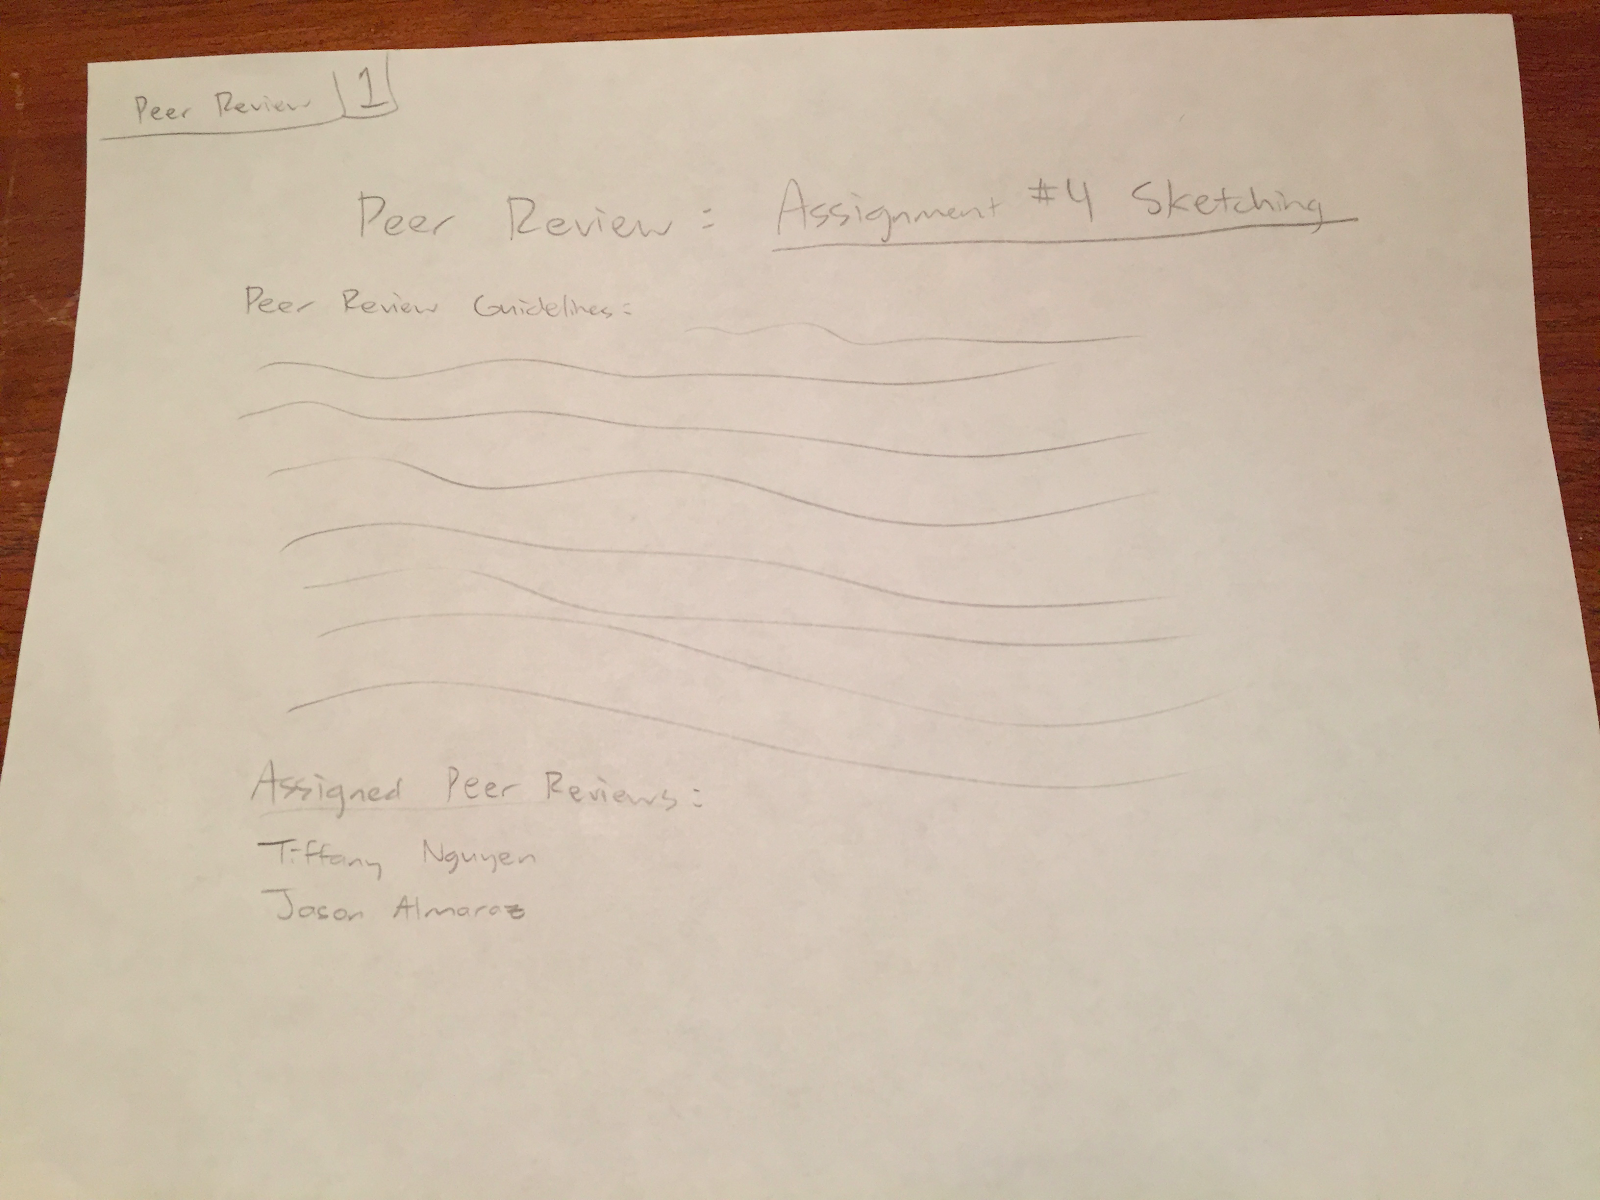 Peer Review 1
Peer Review: Assignment #4 Sketching
Peer Review Guidelines:
Assigned Peer Reviews:
Tiffany Nguyen
Jason Almaraz